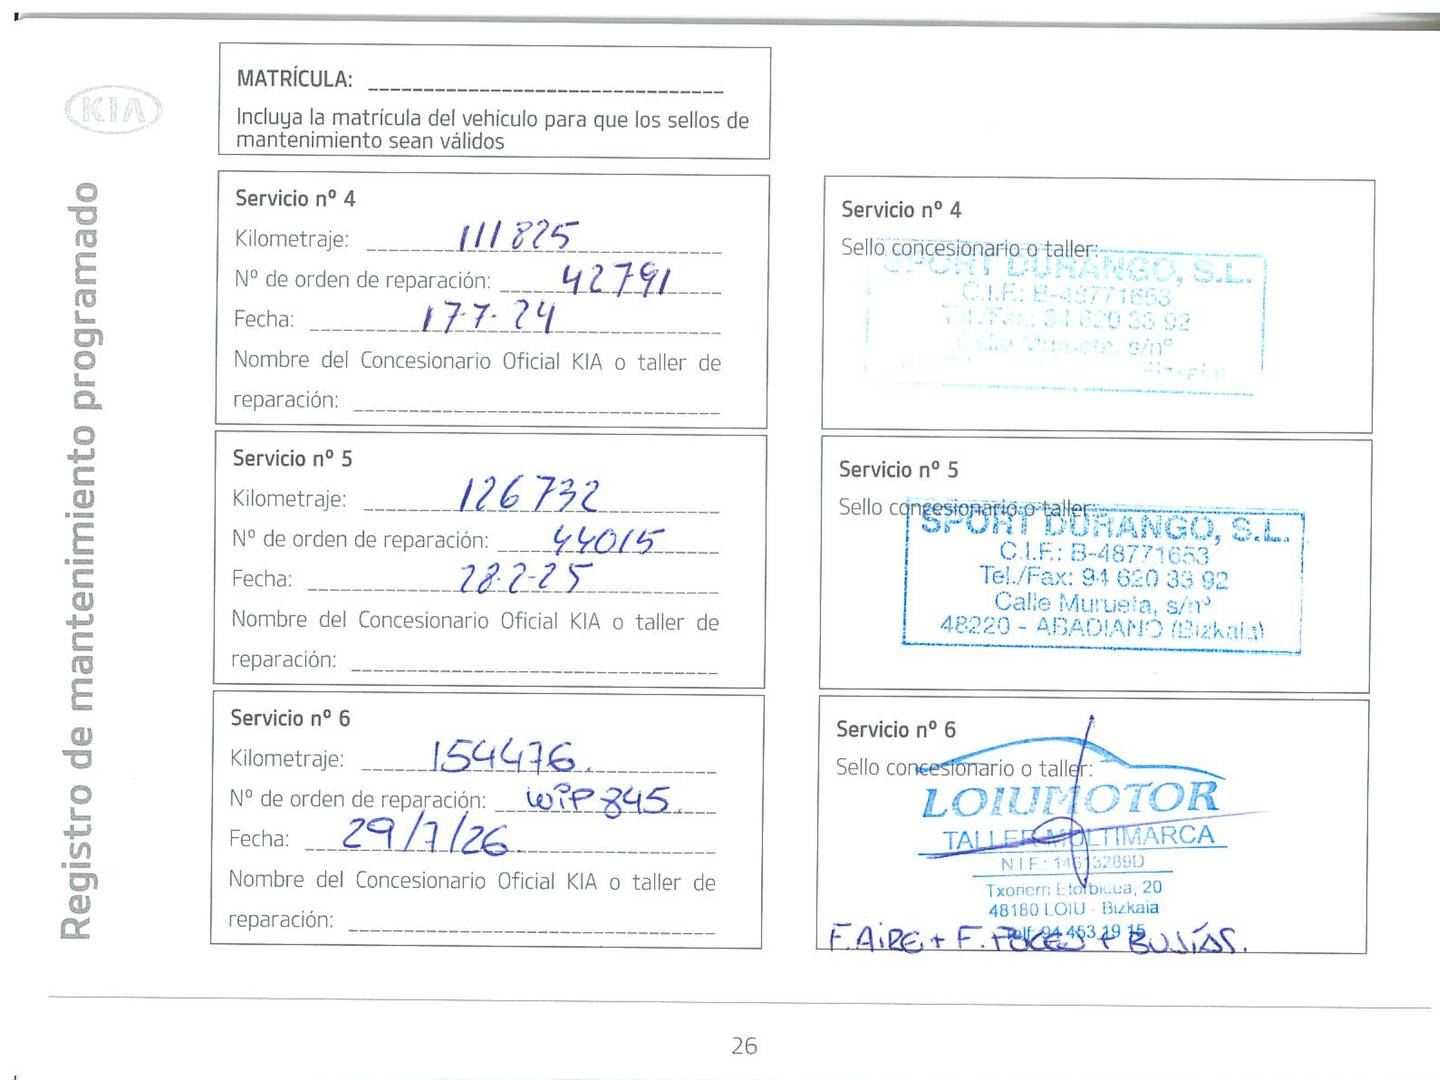 KIA
Registro de mantenimiento programado
MATRÍCULA:
Incluya la matrícula del vehículo para que los sellos de
mantenimiento sean válidos
Servicio nº 4
Kilometraje: 111825
Nº de orden de reparación: 42791
Fecha: 17-7-24
Nombre del Concesionario Oficial KIA o taller de
reparación:
Servicio nº 4
Sello concesionario o taller:
SPORT DURANGO, S.L.
C.I.F.: B-48771653
Tel./Fax: 94 620 33 92
Calle Murueta, s/nº
Servicio nº 5
Kilometraje: 126732
Nº de orden de reparación: 44015
Fecha: 28-2-25
Nombre del Concesionario Oficial KIA o taller de
reparación:
Servicio nº 5
Sello concesionario o taller:
SPORT DURANGO, S.L.
C.I.F.: B-48771653
Tel./Fax: 94 620 33 92
Calle Murueta, s/nº
48220 - ABADIANO (Bizkaia)
Servicio nº 6
Kilometraje: 154476.
Nº de orden de reparación: WIP 845.
Fecha: 29/1/26.
Nombre del Concesionario Oficial KIA o taller de
reparación:
Servicio nº 6
Sello concesionario o taller:
LOIUMOTOR
TALLER MULTIMARCA
N.I.F.: 14613289D
Txorierri Etorbidea, 20
48180 LOIU - Bizkaia
Telf. 94 453 19 15
F. AIRE + F. + BUJÍAS.
26